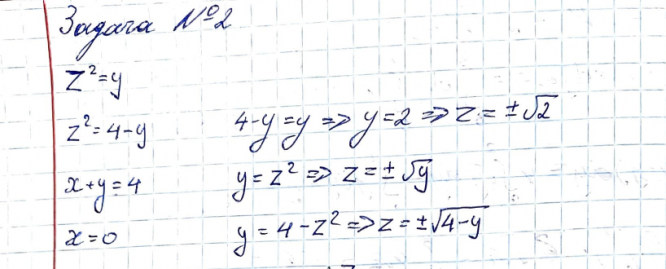 Задача №2
z²=y
z²=4-y 4-y=y => y=2 => z=±√2
x+y=4 y=z² => z=±√y
x=0 y=4-z² => z=±√4-y